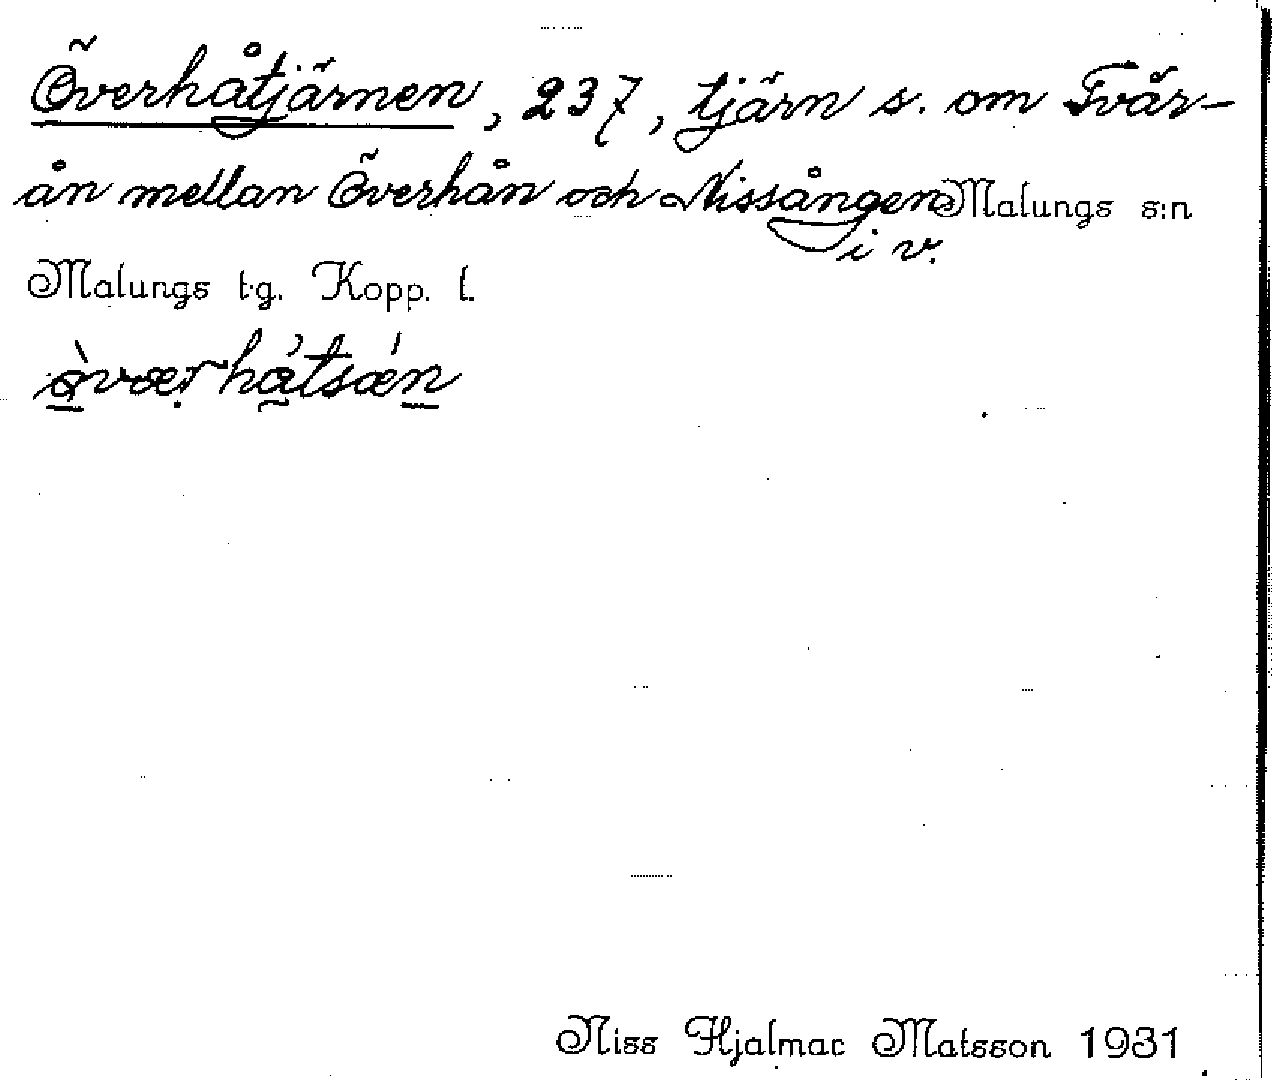 Överhåtjärnen, 237, tjärn s. om Tvär-
ån mellan Överhån och Nissången Malungs s:n
i v.
Malungs t.g. Kopp. l.
Niss Hjalmar Matsson 1931